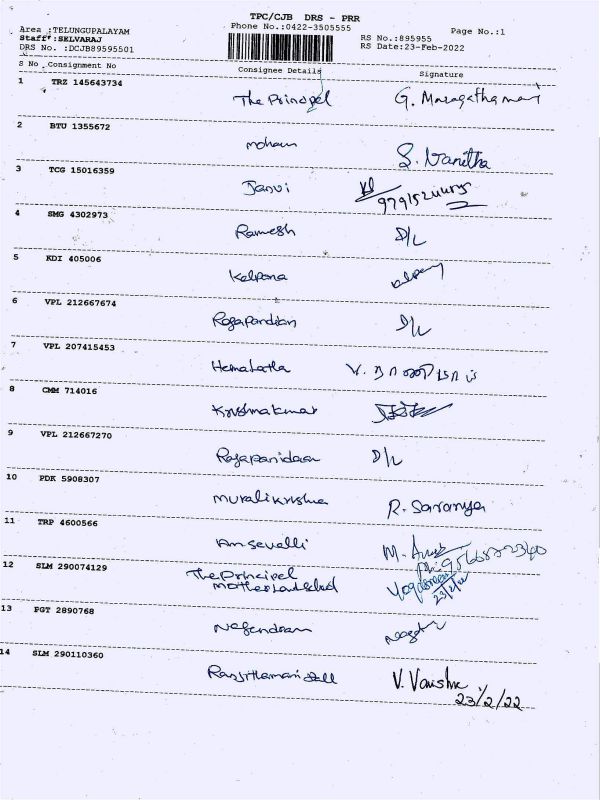 TPC/CJB DRS - PRR
Area :TELUNGUPALAYAM Phone No.:0422-3505555 Page No.:1
Staff*:SELVARAJ RS No.:895955
DRS No. :DCJB89595501 RS Date:23-Feb-2022
S No Consignment No Consignee Details Signature
1 TRZ 145643734
The Principel G. Maragathamani
2 BTU 1355672
mohan S. Vanitha
3 TCG 15016359
Janvi
4 SMG 4302973
Ramesh D/L
5 KDI 405006
Kalpana
6 VPL 212667674
Rajapandian D/L
7 VPL 207415453
Hemalatha V.
8 CMM 714016
Krishnakumar
9 VPL 212667270
D/L
10 PDK 5908307
Muralikrishna R. Saranya
11 TRP 4600566
M.
12 SLM 290074129
The Principel
23/2/22
13 PGT 2890768
Nagendran
14 SLM 290110360
V.
23/2/22